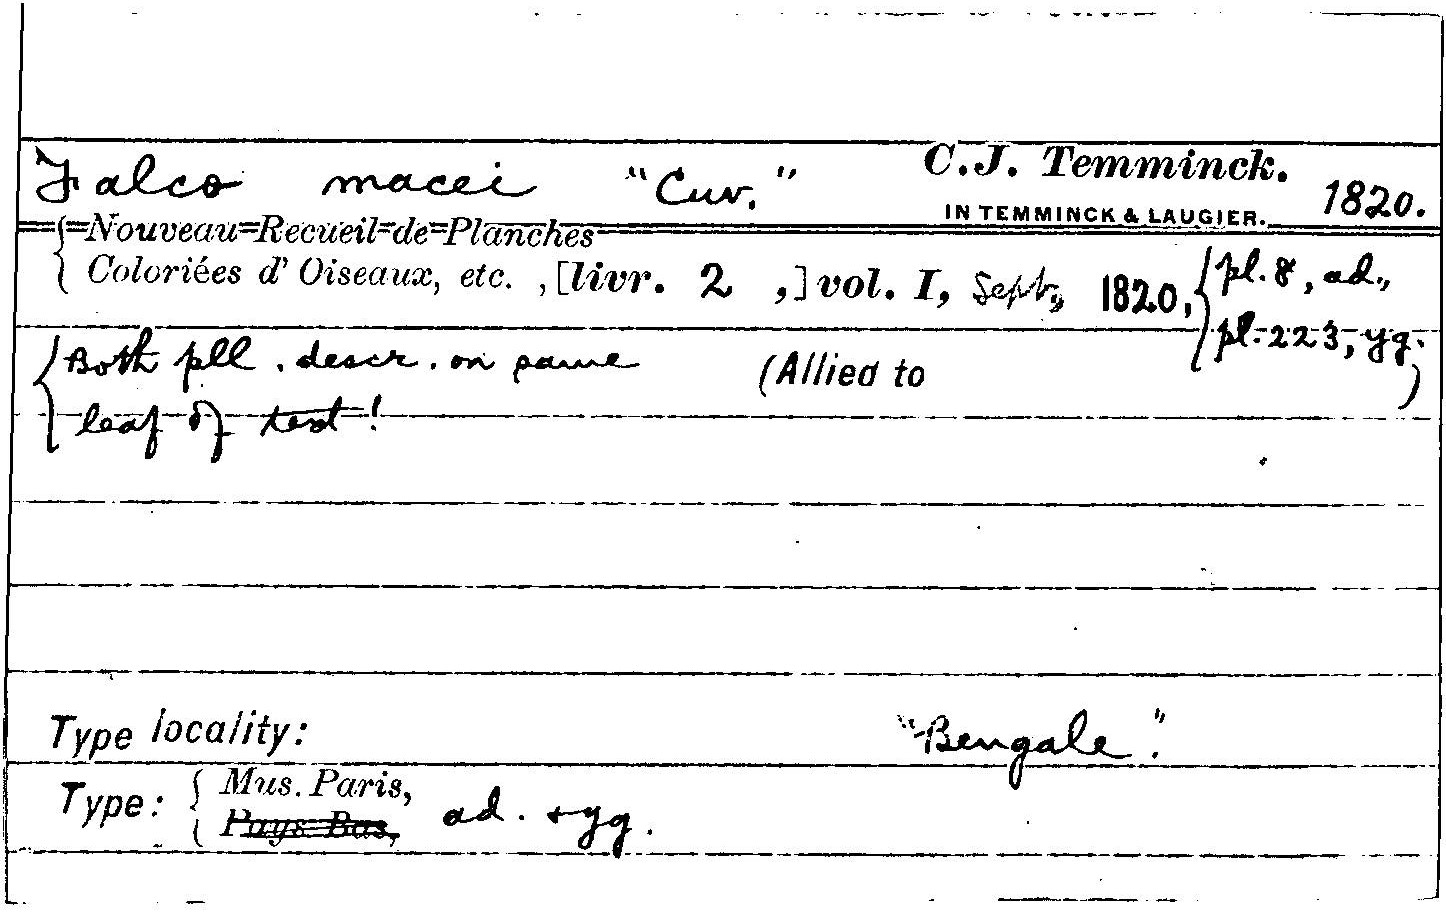 Falco macei "Cuv." C.J. Temminck. 1820.
IN TEMMINCK & LAUGIER.
Nouveau Recueil de Planches
Coloriées d' Oiseaux, etc. , [livr. 2 ,] vol. I, Sept., 1820, pl. 8, ad.,
pl. 223, yg.
Both pll. descr. on same (Allied to )
leaf of text!
Type locality: "Bengale".
Type: Mus. Paris,
Pays Bas, ad. + yg.